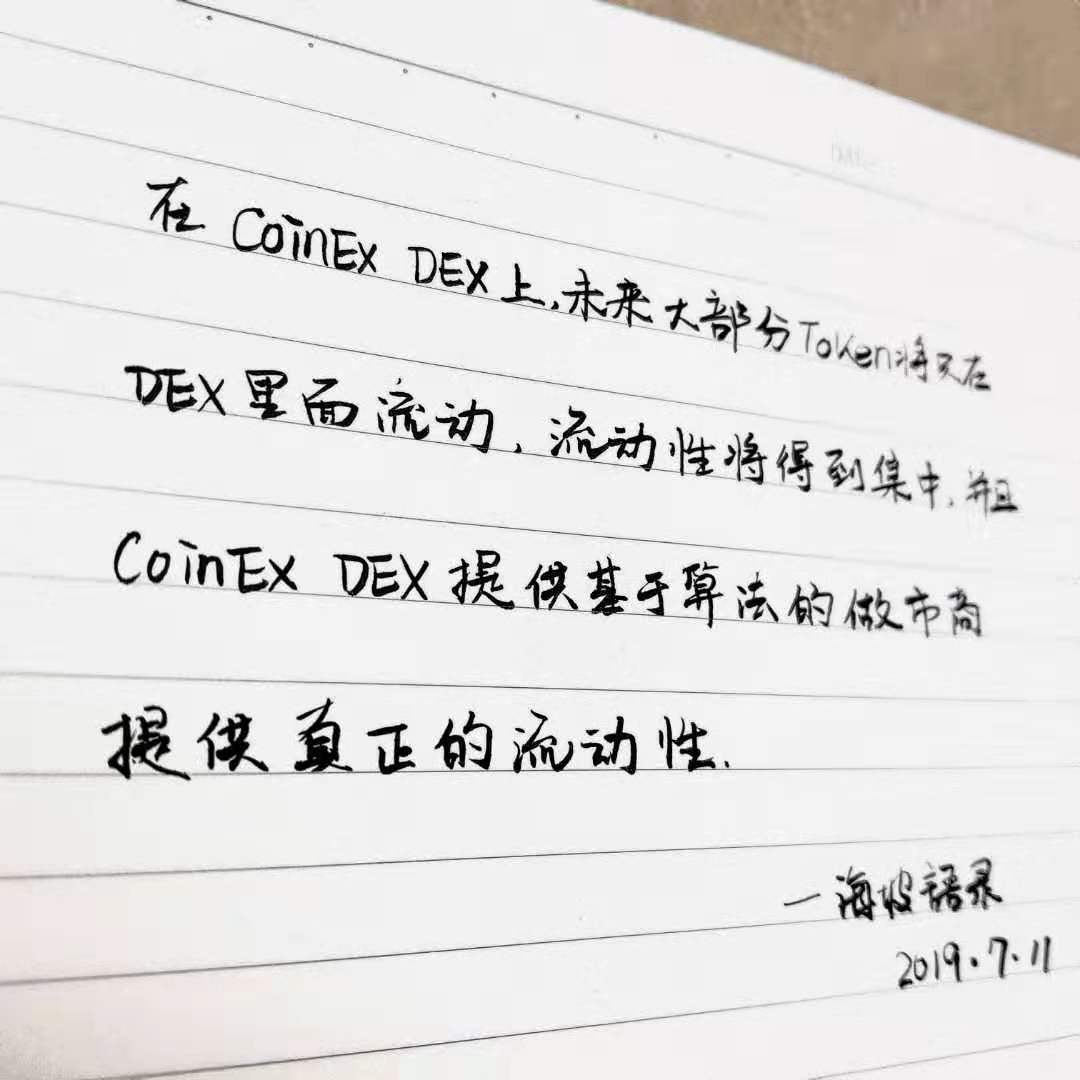 在 CoinEx DEX上,未来大部分Token将只在
DEX里面流动,流动性将得到集中,并且
CoinEx DEX提供基于算法的做市商
提供真正的流动性.
—海坡语录
2019.7.11